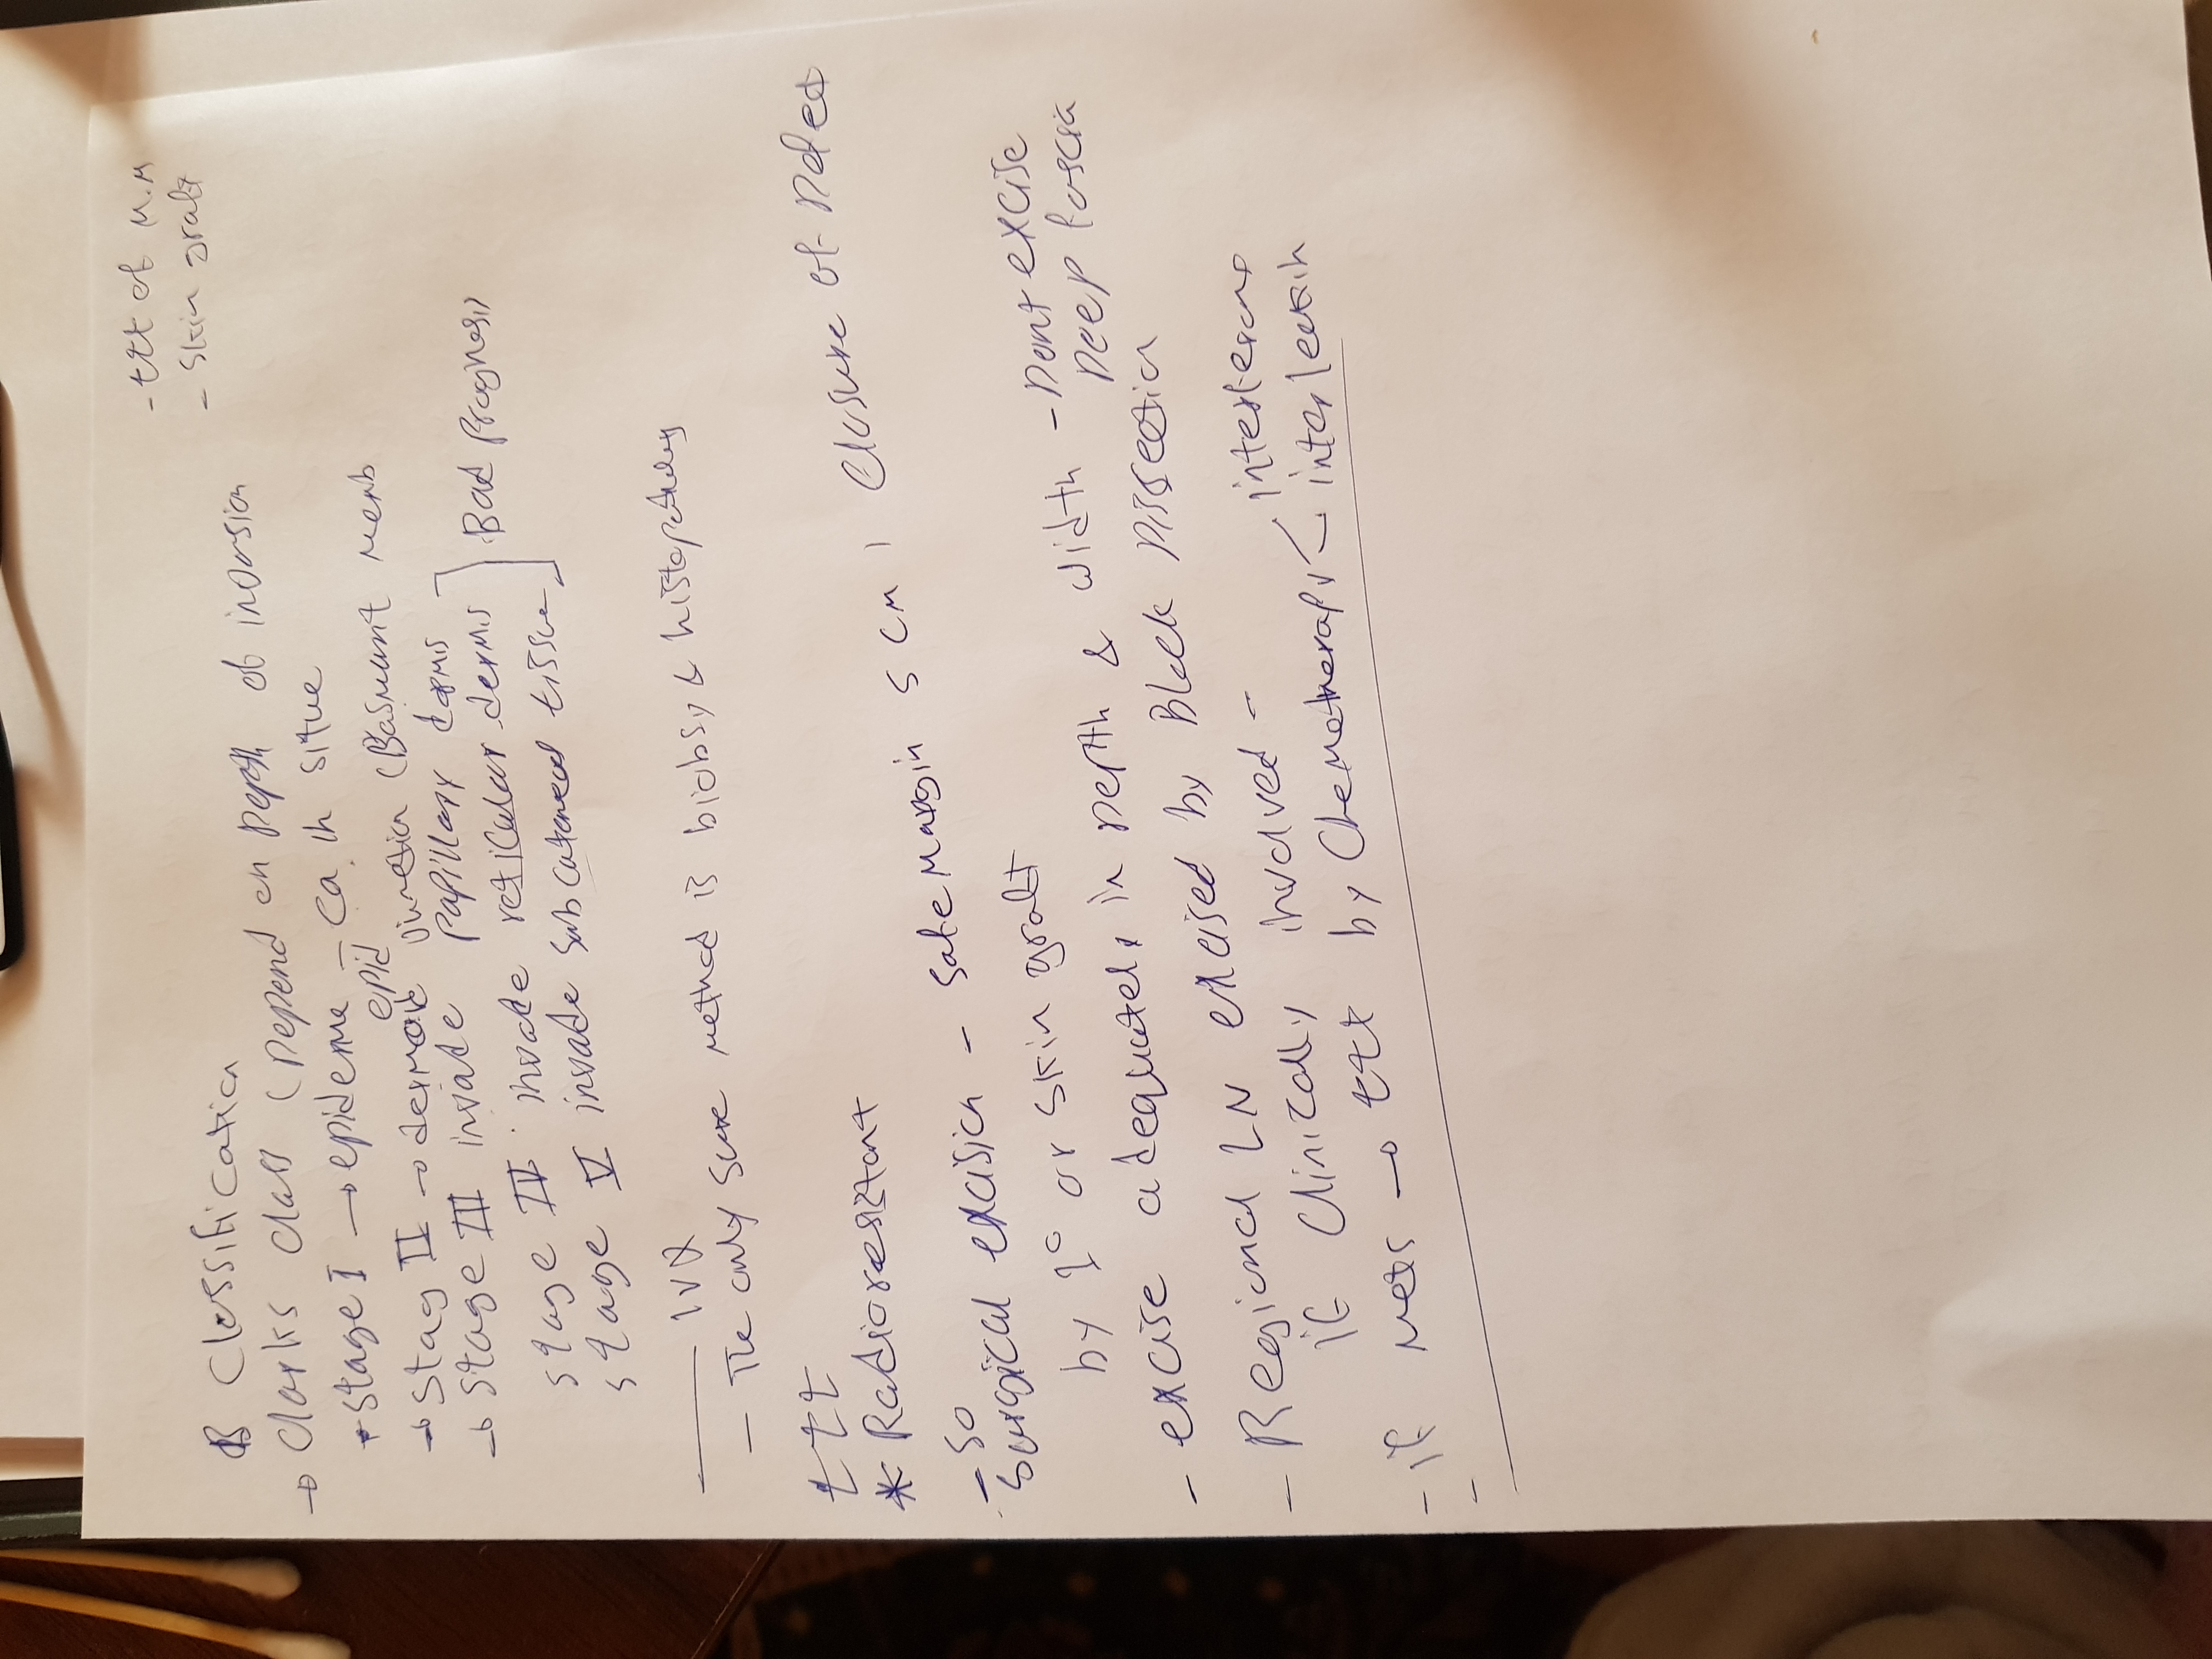 - ttt of M.M
- Skin graft
B Classification
→ Clarks class (Depend on Depth of invasion
* Stage I → epiderme - Ca. in situe
→ Stag II → dermoepid junction (Basmant memb
→ Stage III invade Papillary dermis
Stage IV invade reticular dermis
Stage V invade subcutaneous tissue
Bad Prognosis
IVX
- The only sure method is biobsy & histopathology
ttt
* Radioresistant
- So
Surgical excision - Safe Margin 5 cm, closure of Defect
by 1° or skin graft
- excise adequately in Depth & width - Dont excise
Deep fascia
- Regional LN excised by Block Dissection
if clinically involved -
- if Mets → ttt by Chemotherapy < interferone
interleukin